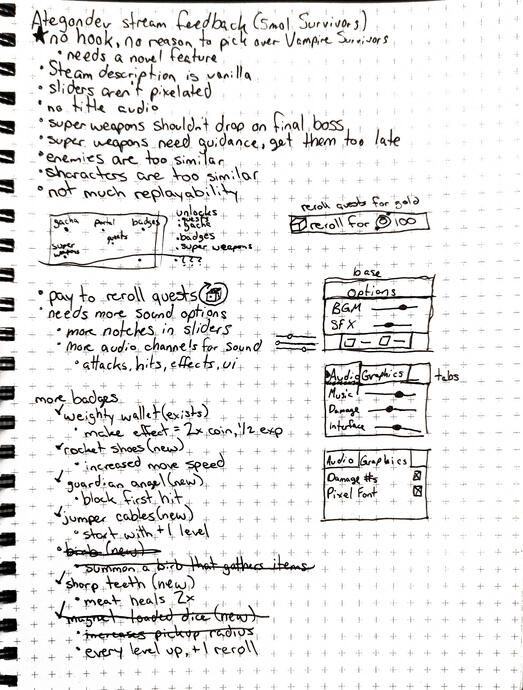 Ategondev stream feedback (Smol Survivors)
★ no hook, no reason to pick over Vampire Survivors
• needs a novel feature
• Steam description is vanilla
• sliders aren't pixelated
• no title audio
• super weapons shouldn't drop on final boss
• super weapons need guidance, get them too late
• enemies are too similar
• characters are too similar
• not much replayability
gacha portal badges
quests
super weapons
unlocks
• quests
• gacha
• badges
• super weapons
• ???
reroll quests for gold
reroll for 100
• pay to reroll quests
• needs more sound options
• more notches in sliders
• more audio channels for sound
• attacks, hits, effects, ui
base
Options
BGM
SFX
Audio Graphics
tabs
Music
Damage
Interface
Audio Graphics
Damage #s
Pixel Font
more badges
✓ weighty wallet (exists)
• make effect = 2x coin, 1/2 exp
✓ rocket shoes (new)
• increased move speed
✓ guardian angel (new)
• block first hit
✓ jumper cables (new)
• start with +1 level
• birb (new)
• summon a birb that gathers items
✓ sharp teeth (new)
• meat heals 2x
✓ magnet loaded dice (new)
• increases pickup radius
• every level up, +1 reroll